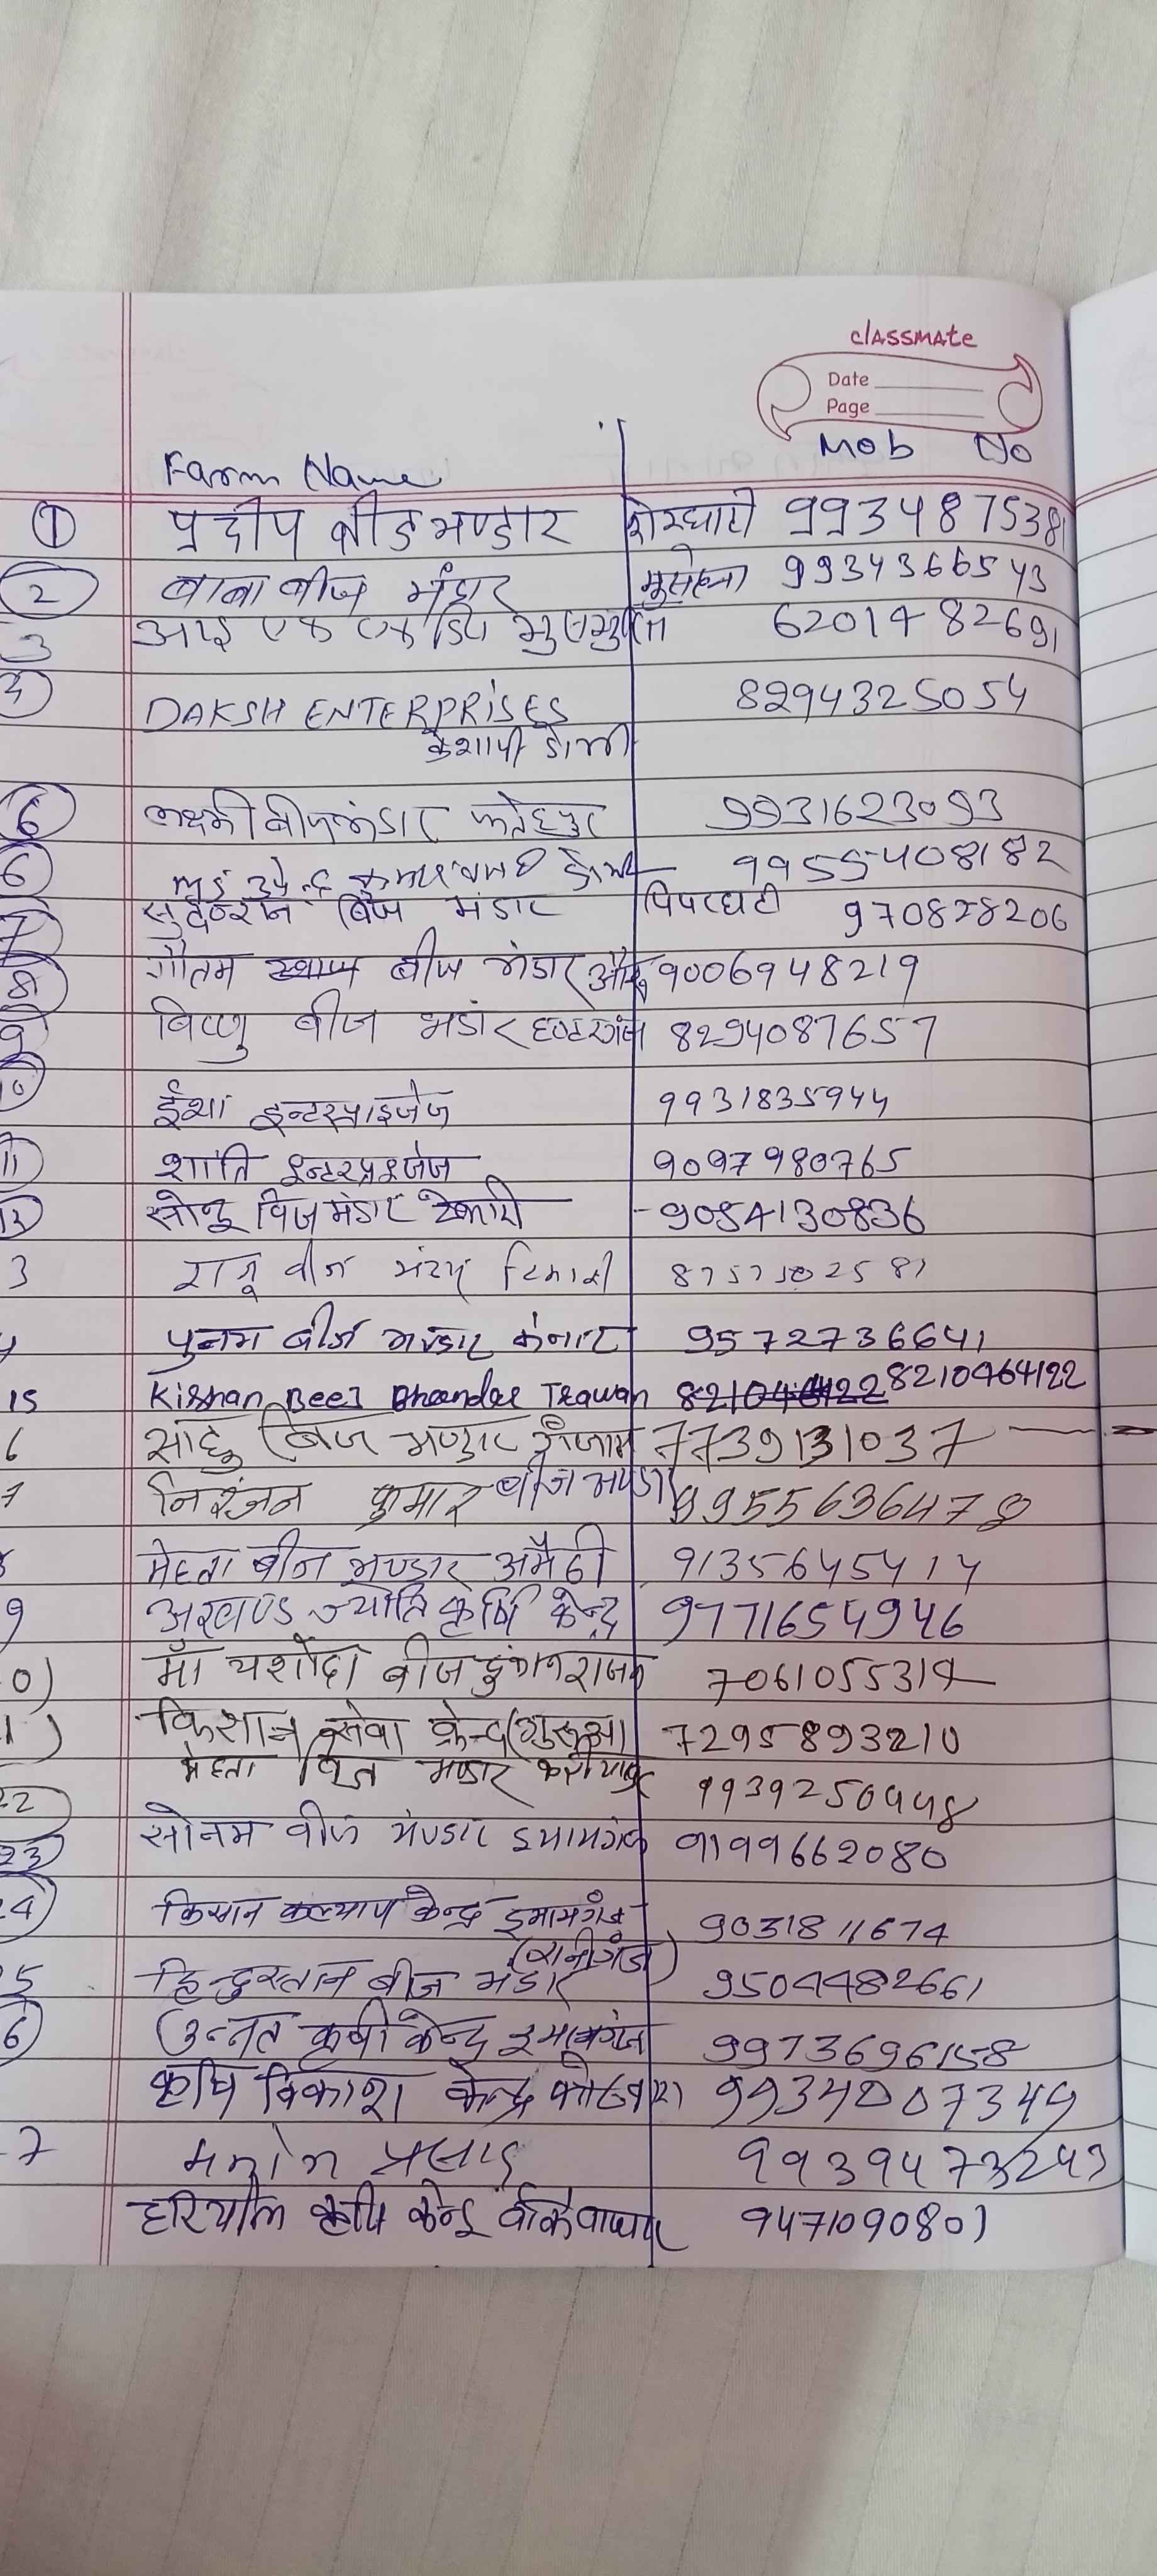 classmate
Date
Page
Farm Name Mob No
1 प्रदीप बीज भण्डार शेरघाटी 9934875381
2 बाबा बीज भंडार 9934366543
3 6201482691
DAKSH ENTERPRISES 8294325054
लक्ष्मी बीज भंडार फतेहपुर 9931623093
6 9955408182
7 सुदर्शन बिज भंडार पिपरघटी 970828206
8 गौतम बीज भंडार 9006948219
9 विष्णु बीज भडार हण्टरगंज 8294087657
ईशा इन्टरप्राइजेज 9931835944
11 शान्ति इन्टरप्राइजेज 9097980765
सोनू विज भंडार टेकारी 9054130836
3 राजू बीज
पुनम बीज भण्डार 9572736641
15 Kishan Beej Bhandar Trawan 8210464122
6 साहु बिज भण्डार 7739131037
7 निरंजन कुमार बीज भण्डार 9955636478
मेहता बीज भण्डार अमैठी 9135645414
9 अखण्ड ज्योति कृषि केन्द्र 9771654946
0) माँ यशोदा बीज 7061055314
किसान सेवा केन्द्र (गुरूआ) 7295893210
22 मेहता बिज भण्डार 9939250448
23 सोनम बीज भण्डार इमामगंज 9199662080
24 किसान कल्याण केन्द्र इमामगंज 9031811674
(रानीगंज)
5 हिन्दुस्तान बीज भंडार 9504482661
6 उन्नत कृषी केन्द्र इमामगंज 9973696158
कृषि विकाश केन्द्र 9934007349
7 मनोज प्रसाद 9939473243
कृषि केन्द्र 9471090801